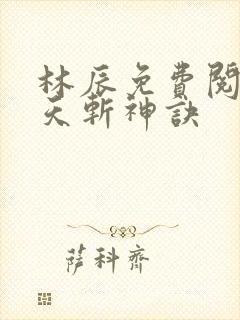 林辰免費閱
天斬神訣
薩科齊